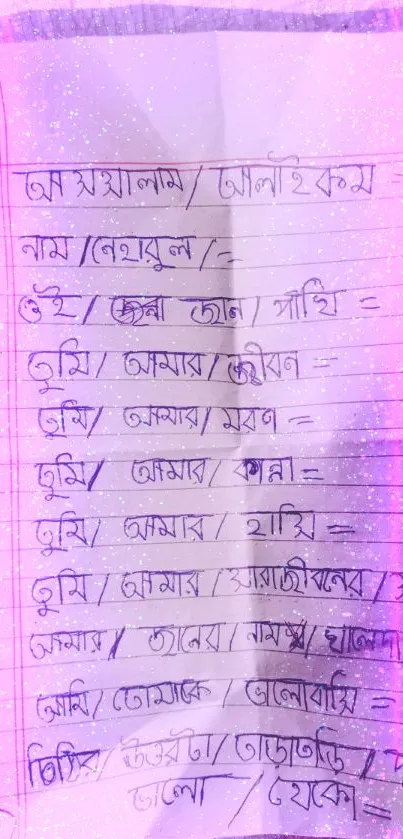 আসসালাম / আলাইকম =
নাম / নেহারুল / =
ওই / জান / পাখি =
তুমি / আমার / জীবন =
তুমি / আমার / মরণ =
তুমি / আমার / কান্না =
তুমি / আমার / হাসি =
তুমি / আমার / সারাজীবনের /
আমার / জানের / নাম / খালেদা
আমি / তোমাকে / ভালোবাসি =
চিঠির / উওরটা / তাড়াতাড়ি /
ভালো / থেকো =